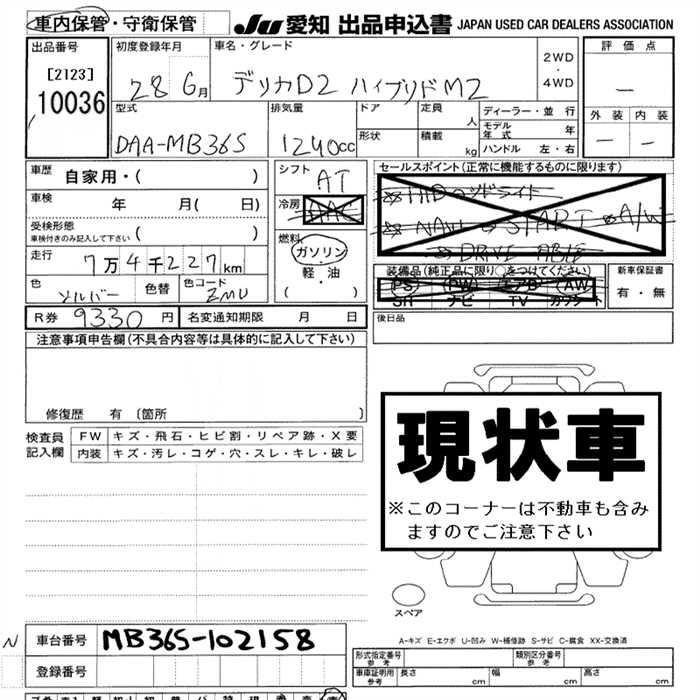 車内保管・守衛保管
JU 愛知 出品申込書 JAPAN USED CAR DEALERS ASSOCIATION
出品番号
[2123]
10036
初度登録年月
28 6月
車名・グレード
デリカD2 ハイブリドMZ
2WD
・
4WD
評価点
外装 内装
型式
DAA-MB36S
排気量
1240cc
ドア
形状
定員 人
積載 kg
ディーラー・並行
モデル年式 年
ハンドル 左・右
車歴 自家用・( )
車検 年 月( 日)
受検形態
車検付きのみ記入して下さい ( )
走行 7万4千227km
色 シルバー 色替 色コード ZMU
シフト AT
冷房 AAC
燃料 ガソリン
・
軽・油
( )
R券 9330円 名変通知期限 月 日
セールスポイント(正常に機能するものに限ります)
☆HIDヘッドライト
☆NAVI ☆START ☆A/W
☆DRIVE ABLE
装備品(純正品に限り○をつけてください)
(PS) (PW) エアB (AW)
SR ナビ TV カワシート
新車保証書
有・無
後日品
注意事項申告欄(不具合内容等は具体的に記入して下さい)
修復歴 有 〔箇所 〕
検査員記入欄
FW キズ・飛石・ヒビ割・リペア跡・X要
内装 キズ・汚レ・コゲ・穴・スレ・キレ・破レ
現状車
※このコーナーは不動車も含み
ますのでご注意下さい
スペア
A-キズ E-エクボ U-凹み W-補修跡 S-サビ C-腐食 XX-交換済
N
車台番号 MB36S-102158
登録番号
形式指定番号 参考
類別区分番号 参考
車庫証明用 参考 長さ cm 幅 cm 高さ cm